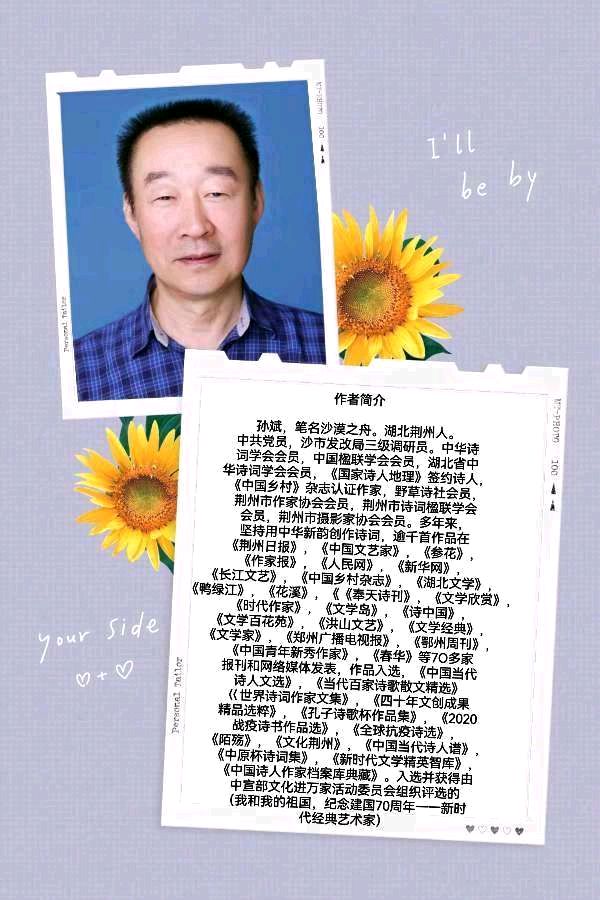 M7-P8070 100
I'll
be by
Personal Tailor
作者简介
孙斌，笔名沙漠之舟。湖北荆州人。
中共党员，沙市发改局三级调研员。中华诗
词学会会员，中国楹联学会会员，湖北省中
华诗词学会会员，《国家诗人地理》签约诗人，
《中国乡村》杂志认证作家，野草诗社会员，
荆州市作家协会会员，荆州市诗词楹联学会
会员，荆州市摄影家协会会员。多年来，
坚持用中华新韵创作诗词，逾千首作品在
《荆州日报》，《中国文艺家》，《参花》，
《作家报》，《人民网》，《新华网》，
《长江文艺》，《中国乡村杂志》，《湖北文学》，
《鸭绿江》，《花溪》，《《奉天诗刊》，《文学欣赏》，
《时代作家》，《文学岛》，《诗中国》，
《文学百花苑》，《洪山文艺》，《文学经典》，
《文学家》，《郑州广播电视报》，《鄂州周刊》，
《中国青年新秀作家》，《春华》等70多家
报刊和网络媒体发表，作品入选，《中国当代
诗人文选》，《当代百家诗歌散文精选》
《《世界诗词作家文集》，《四十年文创成果
精品选粹》，《孔子诗歌杯作品集》，《2020
战疫诗书作品选》，《全球抗疫诗选》，
《陌殇》，《文化荆州》，《中国当代诗人谱》，
《中原杯诗词集》，《新时代文学精英智库》，
《中国诗人作家档案库典藏》。入选并获得由
中宣部文化进万家活动委员会组织评选的
（我和我的祖国，纪念建国70周年——新时
代经典艺术家）
M7-P8070 100
your side
Personal Tailor